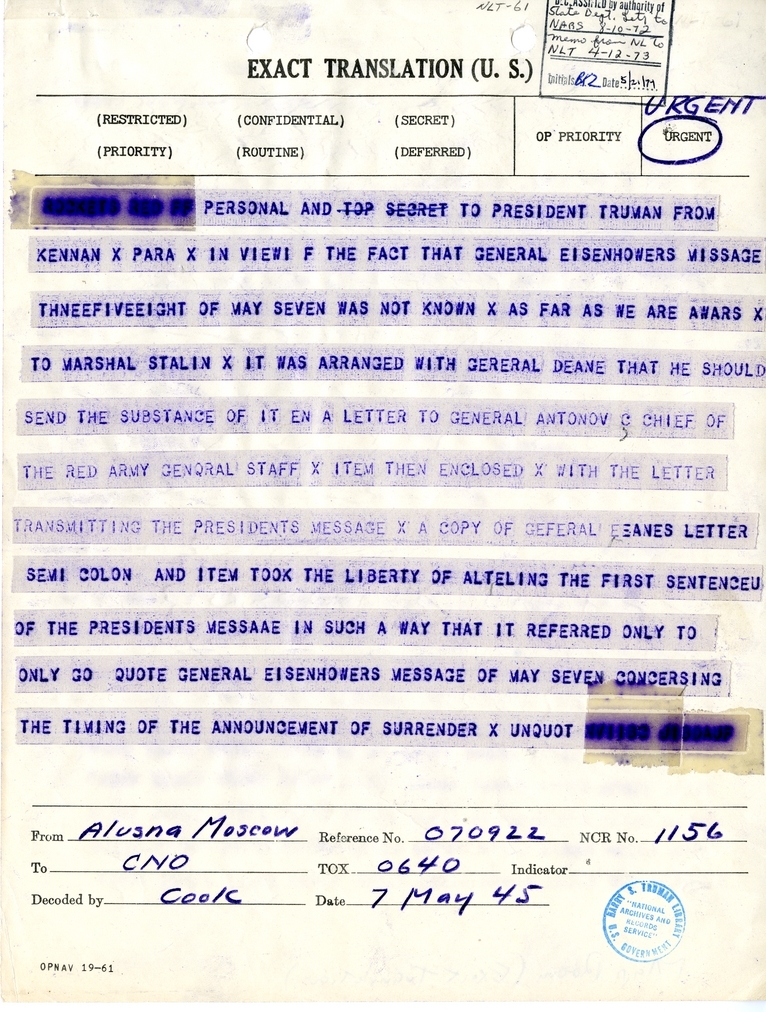 NLT-61
DECLASSIFIED by authority of
State Dept. Let. to
NARS 8-10-72
memo from NL to
NLT 4-12-73
Initials Date 5/21/
EXACT TRANSLATION (U. S.)
URGENT
(RESTRICTED) (CONFIDENTIAL) (SECRET) OP PRIORITY URGENT
(PRIORITY) (ROUTINE) (DEFERRED)
PERSONAL AND TOP SECRET TO PRESIDENT TRUMAN FROM
KENNAN X PARA X IN VIEWI F THE FACT THAT GENERAL EISENHOWERS MISSAGE
THNEEFIVEEIGHT OF MAY SEVEN WAS NOT KNOWN X AS FAR AS WE ARE AWARS X
TO MARSHAL STALIN X IT WAS ARRANGED WITH GERERAL DEANE THAT HE SHOULD
SEND THE SUBSTANCE OF IT EN A LETTER TO GENERAL ANTONOV C CHIEF OF
THE RED ARMY GENQRAL STAFF X ITEM THEN ENCLOSED X WITH THE LETTER
TRANSMITTING THE PRESIDENTS MESSAGE X A COPY OF GEFERAL EEANES LETTER
SEMI COLON AND ITEM TOOK THE LIBERTY OF ALTELING THE FIRST SENTENCEU
OF THE PRESIDENTS MESSAAE IN SUCH A WAY THAT IT REFERRED ONLY TO
ONLY GO QUOTE GENERAL EISENHOWERS MESSAGE OF MAY SEVEN CONCERSING
THE TIMING OF THE ANNOUNCEMENT OF SURRENDER X UNQUOT
From Alusna Moscow Reference No. 070922 NCR No. 1156
To CNO TOX 0640 Indicator
Decoded by Cook Date 7 May 45
HARRY S. TRUMAN LIBRARY
"NATIONAL
ARCHIVES AND
RECORDS
SERVICE"
U.S. GOVERNMENT
OPNAV 19-61